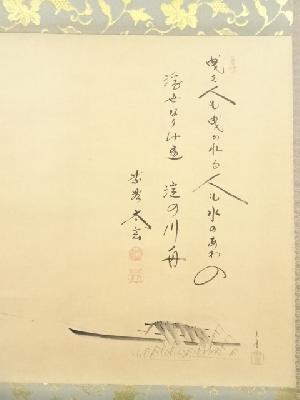 曳く人も曳かれる人も水のあわの
浮世なりけり 淀の川舟
紫野 太玄